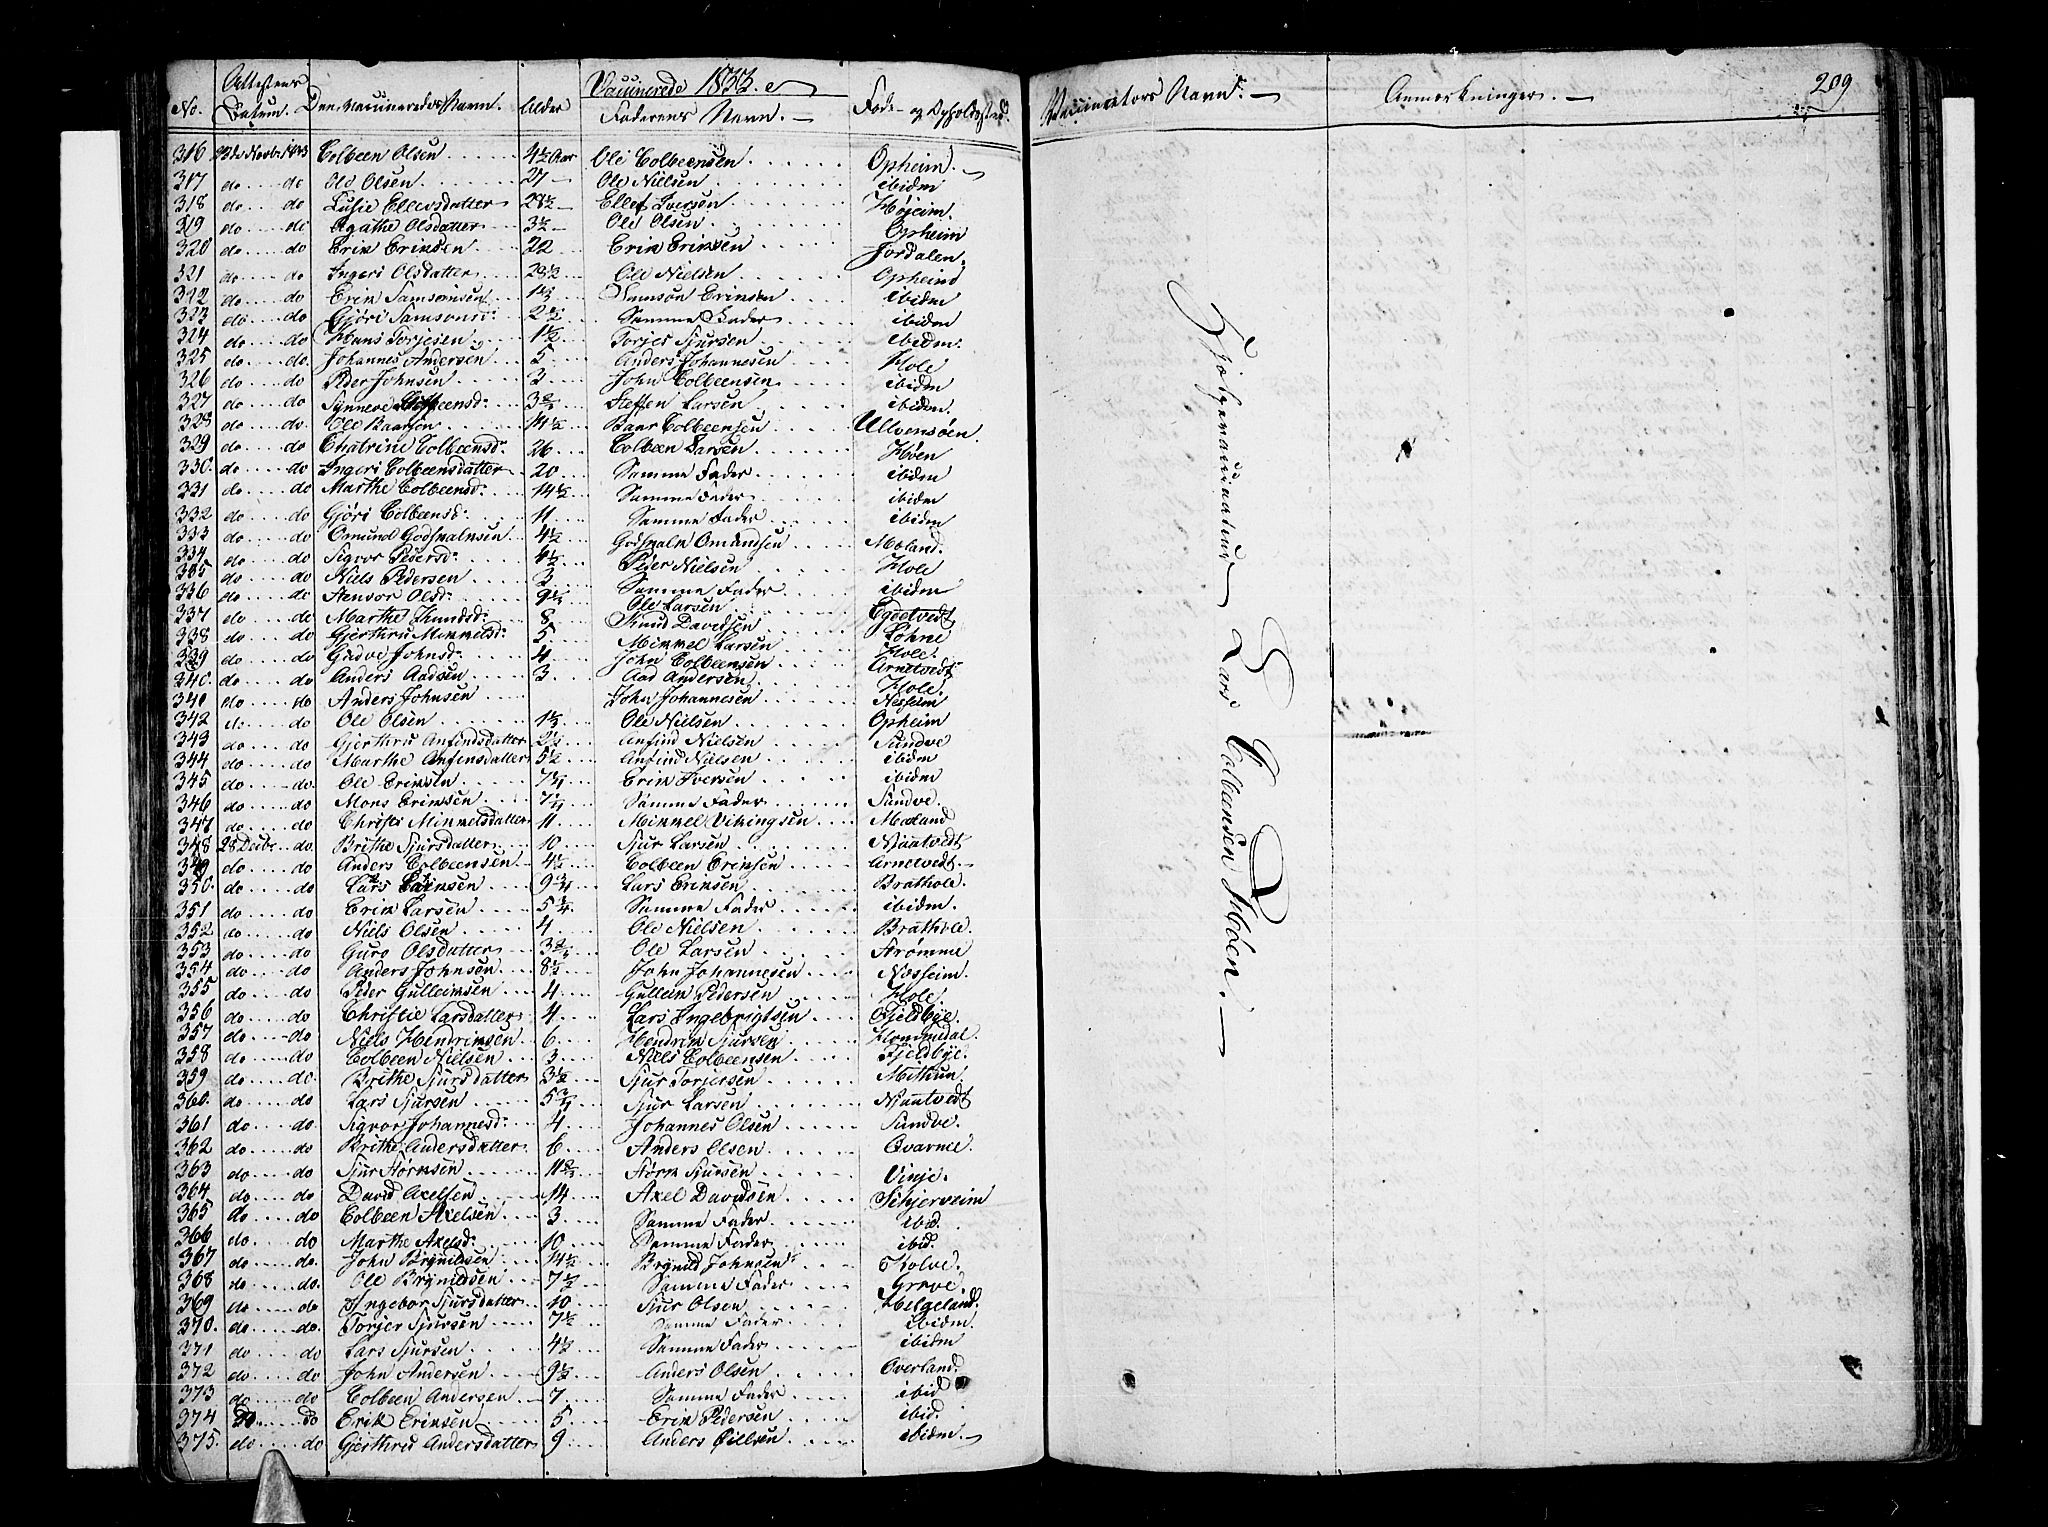 Attestens Vaccinerede 1833.
No. Datum. Den Vaccineredes Navn. Alder Faderens Navn. Føde- og Opholdssted. Vaccinators Navn. Anmærkninger. 209
316 Colbeen Olsen 4½ Aar Ole Colbeensen Opheim.
317 do do Ole Olsen 27 Ole Nielsen ibidm
318 do do Lusie Ellevsdatter 28½ Ellef Iversen Højeim.
319 do do Agathe Olsdatter 3½ Ole Olsen Opheim
320 do do Erik Eriksen 22 Erik Eriksen Jordalen.
321 do do Ingeri Olsdatter 28½ Ole Nielsen Opheim
322 do do Erik Samsonsen Samson Eriksen ibidm
323 do do Gjøri Samsonsd: Samme Fader ibidm
324 do do Hans Torjesen 1½ Torjes Sjursen ibidm.
325 do do. Johannes Andersen 5 Anders Johannesen Hole
326 do do Peder Johnsen 3 John Colbeensen ibidm
327 do do Synneve Steffensd: Steffen Larsen ibidm.
328 do do Ole Baarsen 14½ Baar Colbeensen Ulvensøen.
329 do do Chatrine Colbeensd: 26 Colbeen Larsen Høen
330. do do Ingeri Colbeensdatter 20 Samme Fader ibidm
331 do do Marthe Colbeensd: 14½ Samme Fader ibidm
332 do do Gjøri Colbeensd: 11 Samme Fader ibidm
333 do do Omund Godskalksen 4½ Godskalk Omundsen Moland.
334 do do Sigvor Pedersd: 4½ Peder Nielsen Hole
335 do do Niels Pedersen 3 Samme Fader ibidm
336 do do Stensor Olsd: Ole Larsen
337 do do Marthe Knudsd: 8 Knud Davidsen
338 do do Gjerthru Mikkelsd: 5 Mikkel Larsen Løhne
339 do do Gudve Johnsd: 4 John Colbeensen Hole.
340. do do Anders Aadsen 3 Aad Andersen Arnetvedt
341 do do Anders Johnsen John Johannesen
342 do Ole Olsen Ole Nielsen Opheim
343 do do Gjerthru Anfindsdatter Anfind Nielsen Sundve
344 do do Marthe Anfinsdatter 5½ Anfind Nielsen ibidm
345 do do. Ole Eriksen Erik Iversen ibidm
346 do do Mons Eriksen Samme Fader Sundve.
347 do do Christi Mikkelsdatter 11 Mikkel Vikingsen Moland
348 28 Decbr. do Brithe Sjursdatter 10 Sjur Larsen Njaatvedt
349 do do Anders Colbeensen 4½ Colbeen Eriksen Arnetvedt.
350. do do Lars Larsen 9¾ Lars Eriksen Brathole.
351 do do Erik Larsen 5¾ Samme Fader ibidm.
352 do do Niels Olsen 4 Ole Nielsen Brathole.
353 do do Guro Olsdatter Ole Larsen Strømme
354 do do Anders Johnsen 8½ John Johannesen Næsheim.
355 do do Peder Gulleiksen 4 Gulleik Pedersen Hole.
356 do do Christie Larsdatter 4 Lars Ingebrigtsen Fjeldbye.
357 do do Niels Hendriksen 6 Hendrik Sjursen Hommedal.
358 do do Colbeen Nielsen 3 Niels Colbeensen Fjeldbye.
359 do do. Brithe Sjursdatter 3½ Sjur Torjersen Mithun.
360. do do. Lars Sjursen 5¾ Sjur Larsen Njaatvedt
361 do do. Sigvor Johannesd: 4 Johannes Olsen Sundve.
362 do do Brithe Andersdatter 6 Anders Olsen Qvarme.
363 do do Sjur Størksen Størk Sjursen Vinje.
364 do do David Axelsen 14 Axel Davidsen
365 do do Colbeen Axelsen 3 Samme Fader ibid.
366 do do Marthe Axelsd: 10 Samme Fader ibid.
367 do do. John Brynildsen 14½ Brynild Johnsen Kolve.
368 do do. Ole Brynildsen 7½ Samme Fader Grove.
369 do do Ingebor Sjursdatter 10 Sjur Olsen Helgeland.
370. do do. Torjer Sjursen 7½ Samme Fader ibidm.
371 do do Lars Sjursen 4½ Samme Fader ibidm
372 do do John Andersen 9½ Anders Olsen Overland.
373 do do Colbeen Andersen 7 Samme Fader ibid
374 do do Erik Eriksen 5 Erik Pedersen ibid.
375. do do Gjerthru Andersdatter 9 Anders ibidm.
Lars Colbensen Høen.